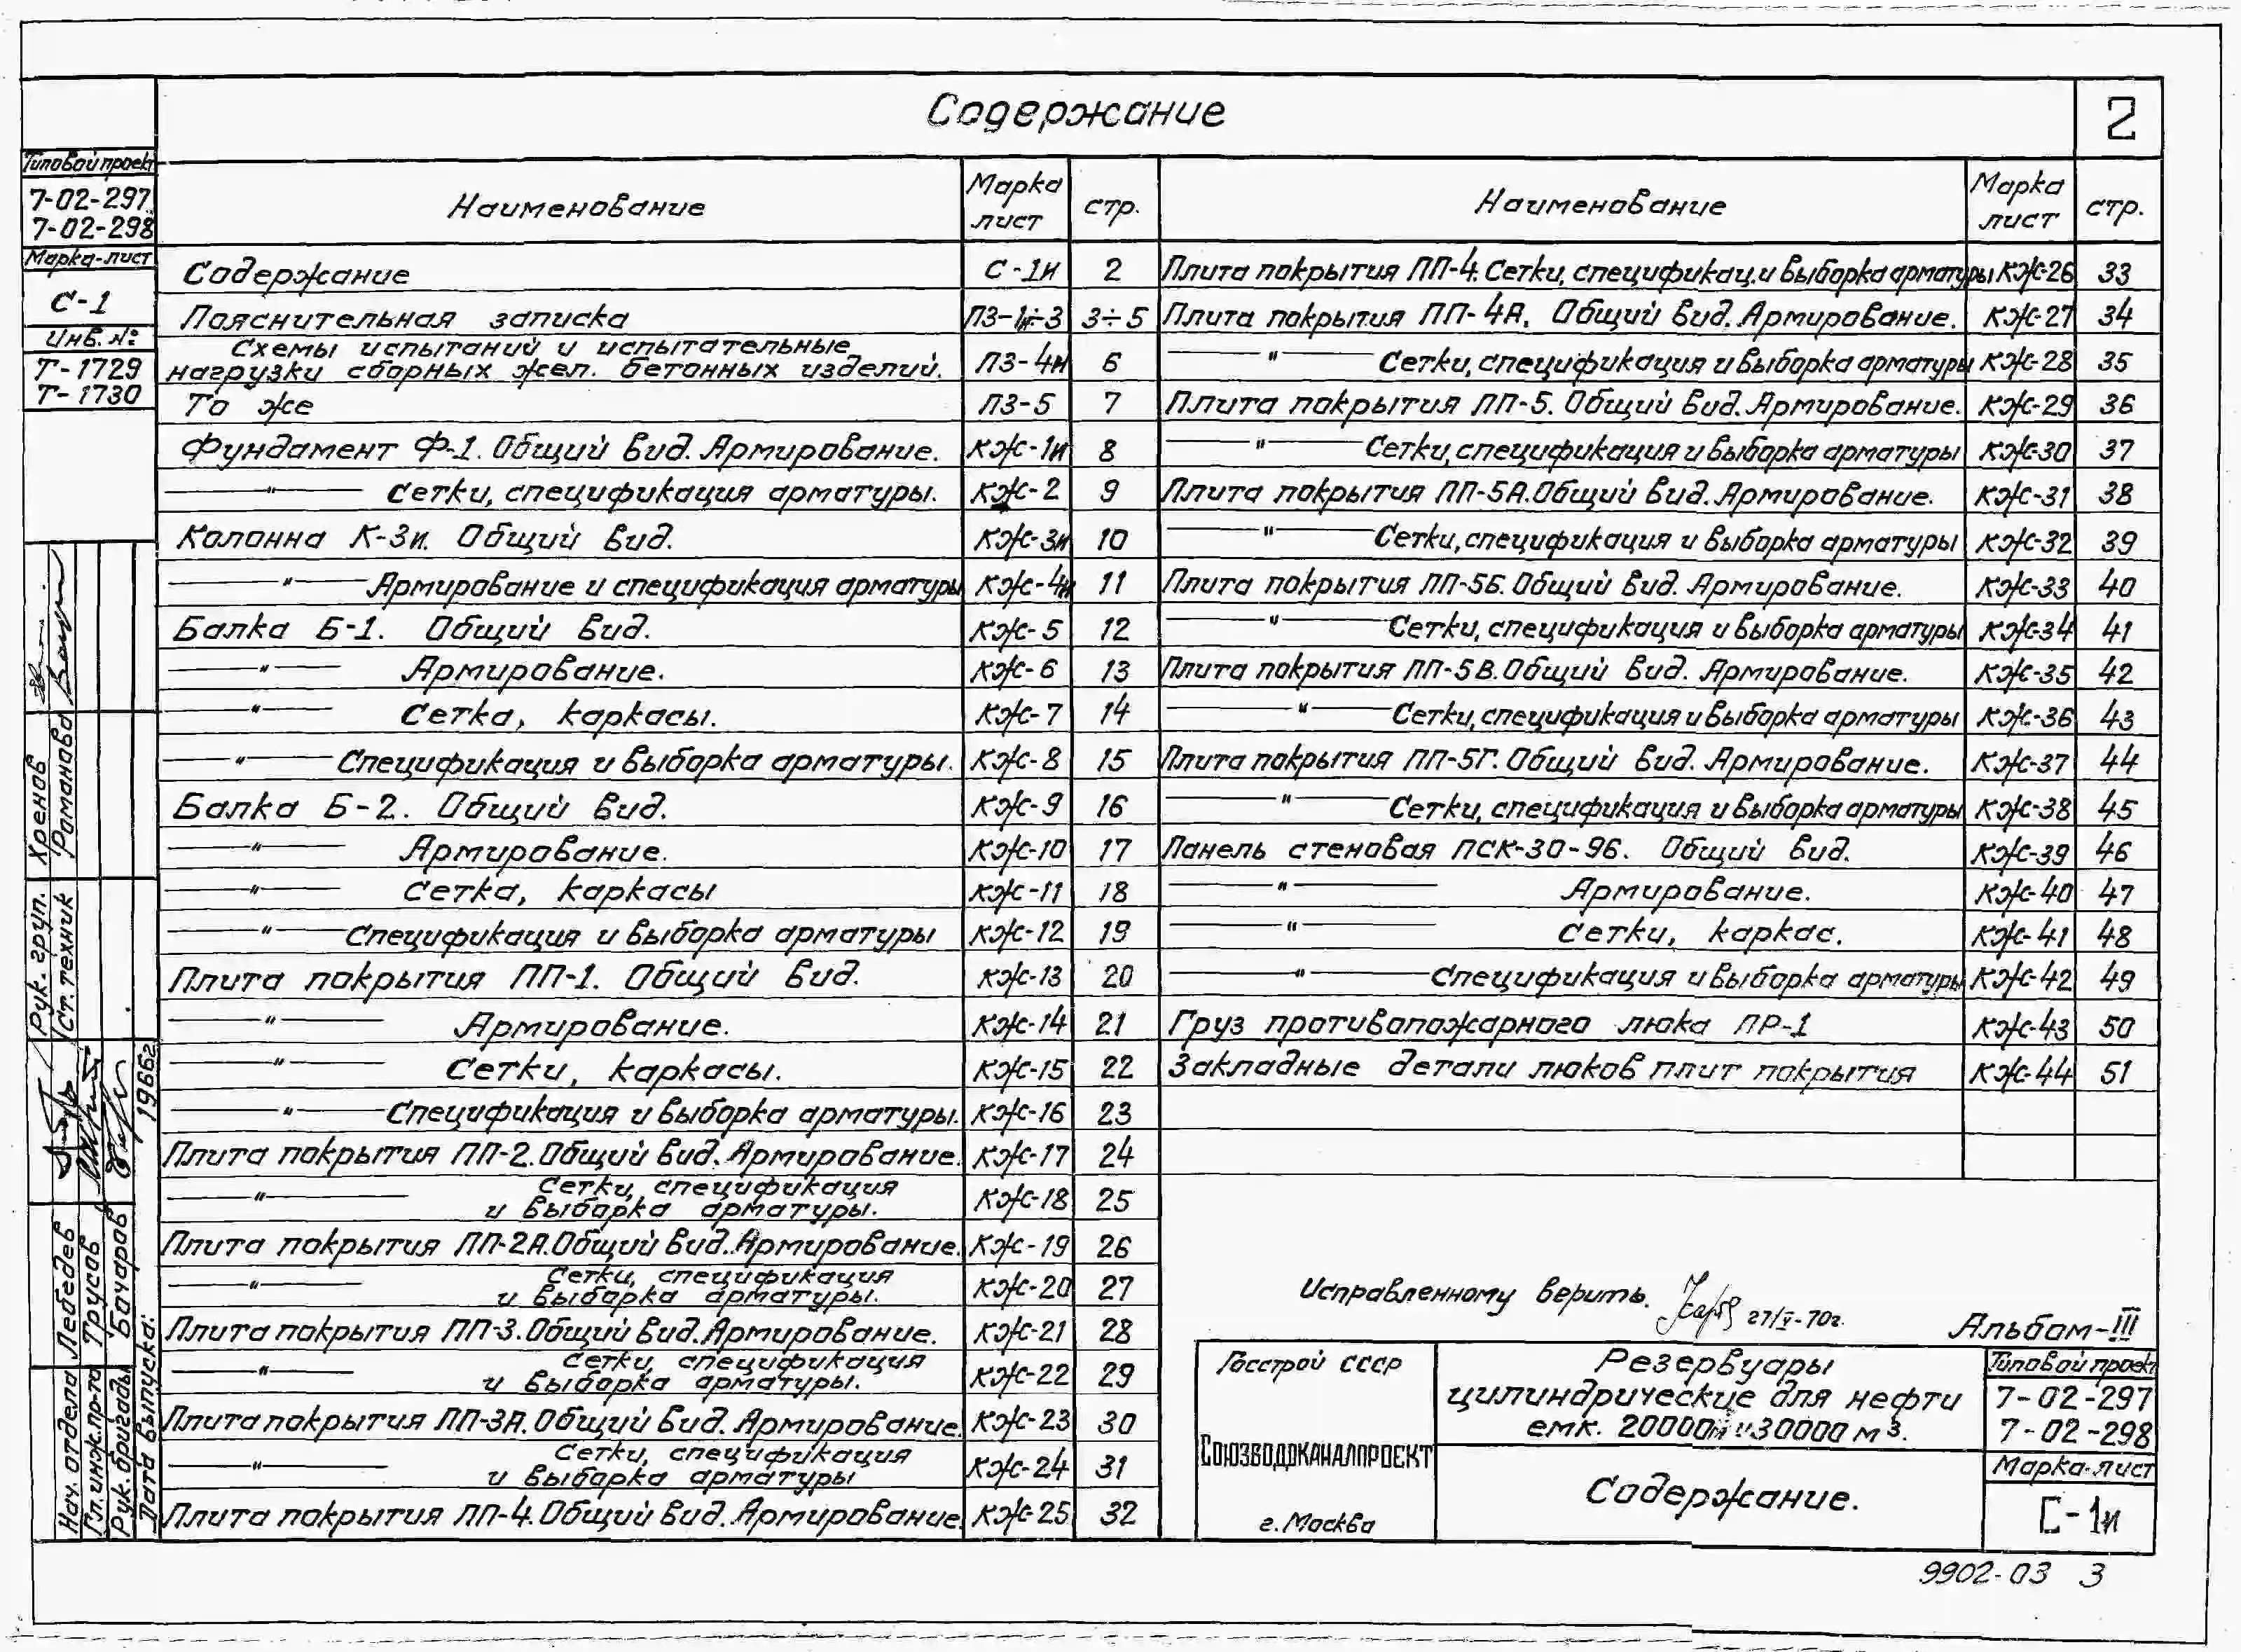 Содержание
2
Типовой проект
7-02-297
7-02-298
Марка-лист
С-1
Инв. №:
Т-1729
Т-1730
Наименование Марка лист стр.
Содержание С-1и 2
Пояснительная записка ПЗ-1и÷3 3÷5
Схемы испытаний и испытательные
нагрузки сборных жел. бетонных изделий. ПЗ-4и 6
То же ПЗ-5 7
Фундамент Ф-1. Общий вид. Армирование. КЖ-1и 8
—"— Сетки, спецификация арматуры. КЖ-2 9
Колонна К-3и. Общий вид. КЖ-3и 10
—"— Армирование и спецификация арматуры КЖ-4и 11
Балка Б-1. Общий вид. КЖ-5 12
—"— Армирование. КЖ-6 13
—"— Сетка, каркасы. КЖ-7 14
—"— Спецификация и выборка арматуры. КЖ-8 15
Балка Б-2. Общий вид. КЖ-9 16
—"— Армирование. КЖ-10 17
—"— Сетка, каркасы КЖ-11 18
—"— Спецификация и выборка арматуры КЖ-12 19
Плита покрытия ПП-1. Общий вид. КЖ-13 20
—"— Армирование. КЖ-14 21
—"— Сетки, каркасы. КЖ-15 22
—"— Спецификация и выборка арматуры. КЖ-16 23
Плита покрытия ПП-2. Общий вид. Армирование. КЖ-17 24
—"— Сетки, спецификация
и выборка арматуры. КЖ-18 25
Плита покрытия ПП-2А. Общий вид. Армирование. КЖ-19 26
—"— Сетки, спецификация
и выборка арматуры. КЖ-20 27
Плита покрытия ПП-3. Общий вид. Армирование. КЖ-21 28
—"— Сетки, спецификация
и выборка арматуры. КЖ-22 29
Плита покрытия ПП-3А. Общий вид. Армирование. КЖ-23 30
—"— Сетки, спецификация
и выборка арматуры КЖ-24 31
Плита покрытия ПП-4. Общий вид. Армирование. КЖ-25 32
Наименование Марка лист стр.
Плита покрытия ПП-4. Сетки, спецификац. и выборка арматуры КЖ-26 33
Плита покрытия ПП-4А. Общий вид. Армирование. КЖ-27 34
—"— Сетки, спецификация и выборка арматуры КЖ-28 35
Плита покрытия ПП-5. Общий вид. Армирование. КЖ-29 36
—"— Сетки, спецификация и выборка арматуры КЖ-30 37
Плита покрытия ПП-5А. Общий вид. Армирование. КЖ-31 38
—"— Сетки, спецификация и выборка арматуры КЖ-32 39
Плита покрытия ПП-5Б. Общий вид. Армирование. КЖ-33 40
—"— Сетки, спецификация и выборка арматуры КЖ-34 41
Плита покрытия ПП-5В. Общий вид. Армирование. КЖ-35 42
—"— Сетки, спецификация и выборка арматуры КЖ-36 43
Плита покрытия ПП-5Г. Общий вид. Армирование. КЖ-37 44
—"— Сетки, спецификация и выборка арматуры КЖ-38 45
Панель стеновая ПСК-30-96. Общий вид. КЖ-39 46
—"— Армирование. КЖ-40 47
—"— Сетки, каркас. КЖ-41 48
—"— Спецификация и выборка арматуры КЖ-42 49
Груз противопожарного люка ПР-1 КЖ-43 50
Закладные детали люков плит покрытия КЖ-44 51
Исправленному верить. 27/V-70г.
Альбом-III
Госстрой СССР
СОЮЗВОДОКАНАЛПРОЕКТ
г. Москва
Резервуары
цилиндрические для нефти
емк. 20000м³ и 30000м³.
Содержание.
Типовой проект
7-02-297
7-02-298
Марка-лист
С-1и
9902-03 3
Рук. груп. Хренов
Ст. техник Романова
Нач. отдела Лебедев
Гл. инж. пр-та Трусов
Рук. бригады Бочаров
Дата выпуска: 1966г